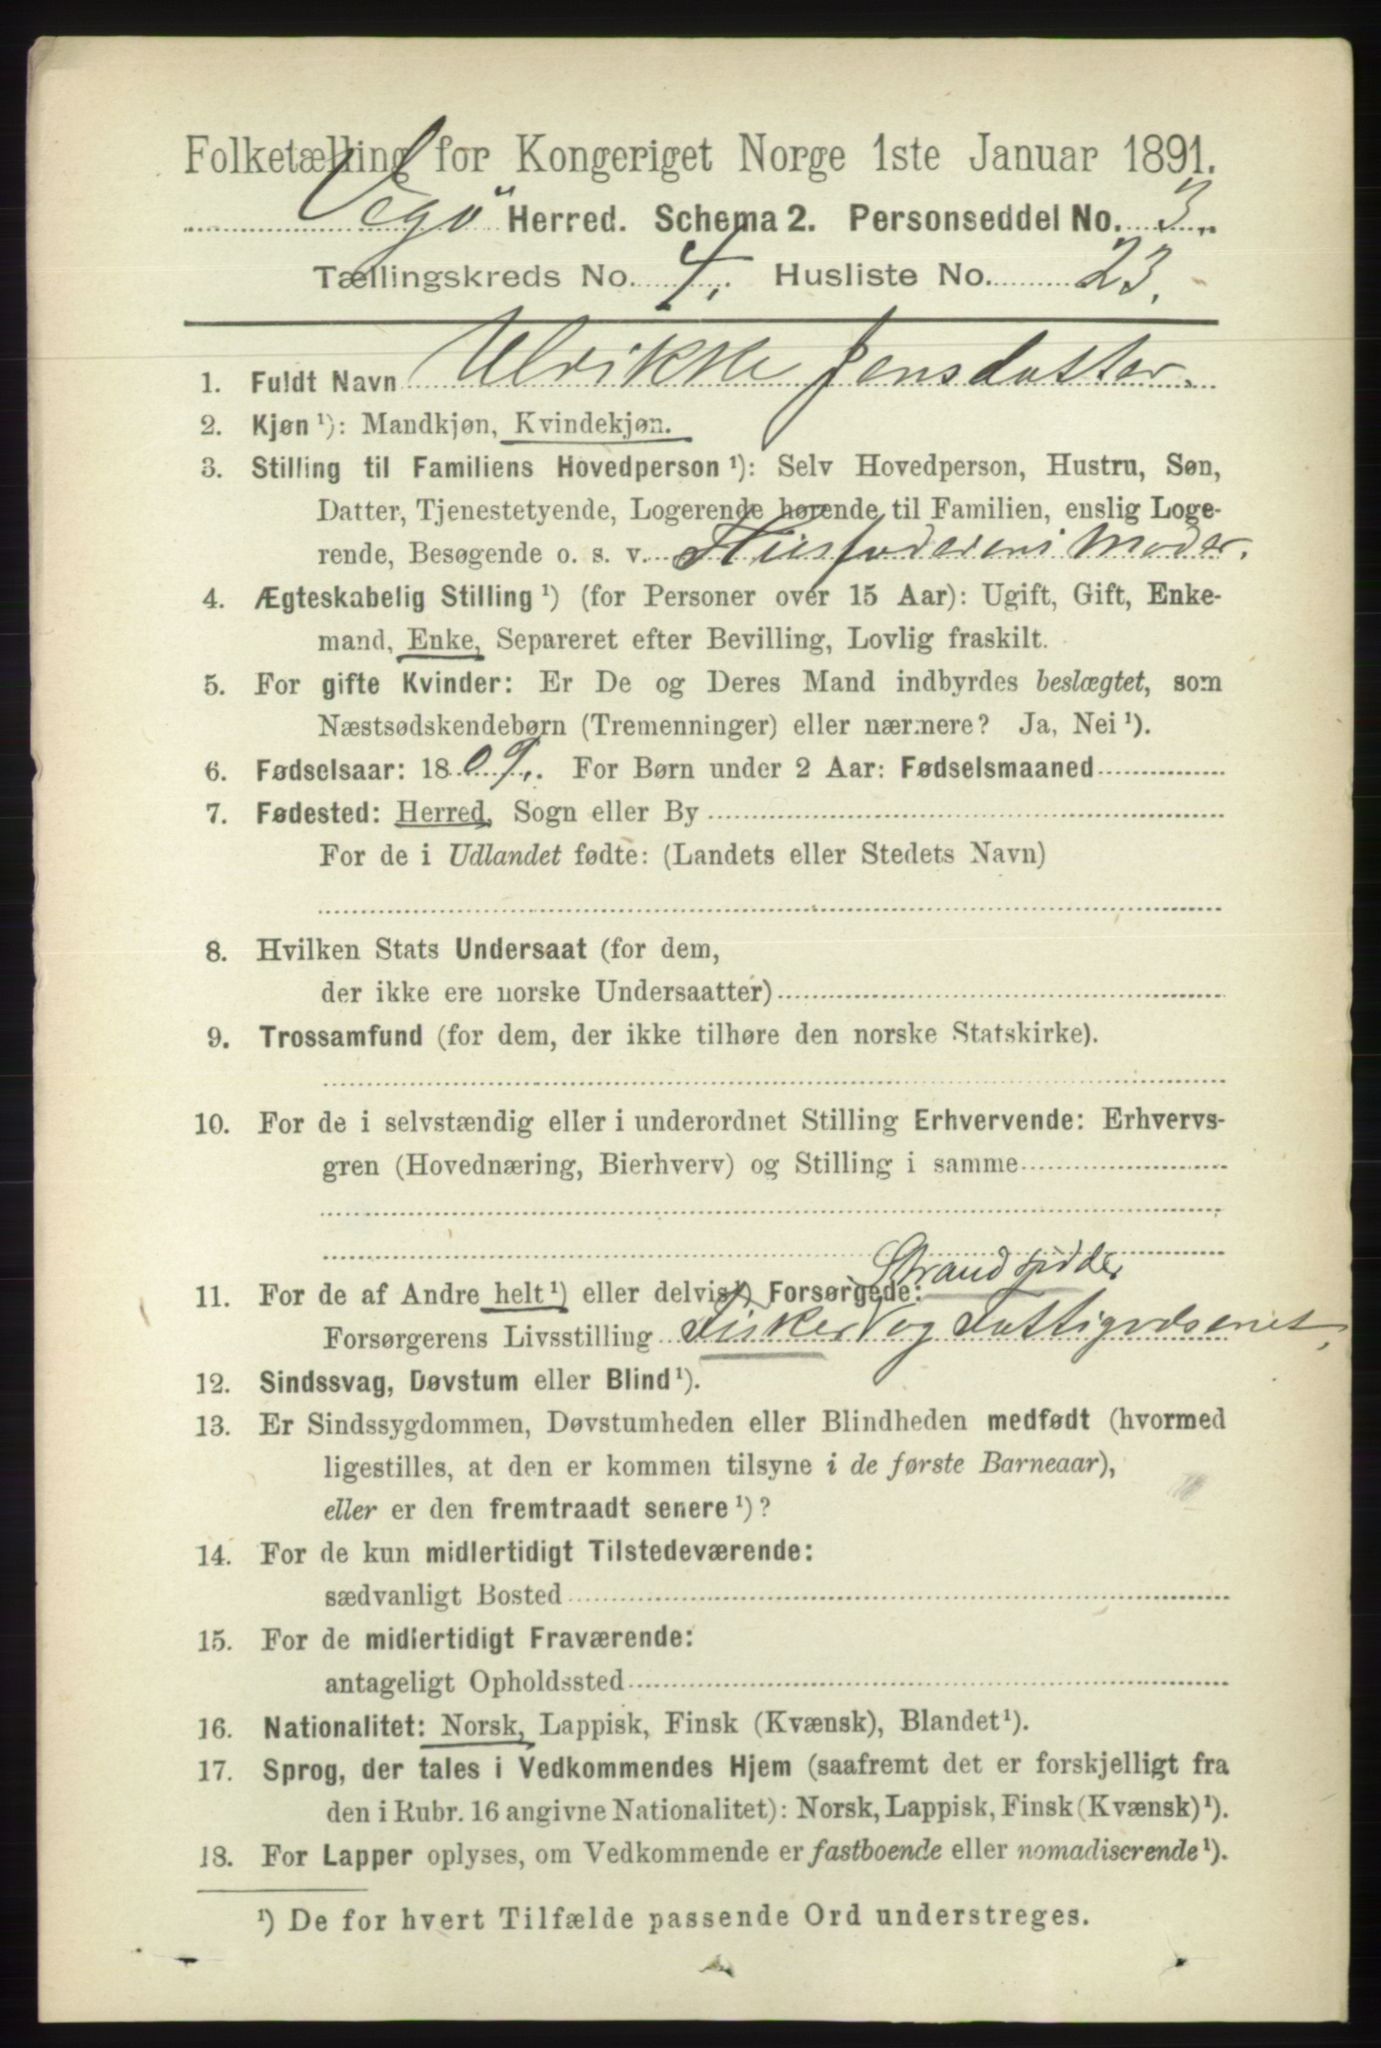 Folketælling for Kongeriget Norge 1ste Januar 1891.
Vegö Herred. Schema 2. Personseddel No. 3.
Tællingskreds No. 4. Husliste No. 23.
1. Fuldt Navn Ulrikke Jensdatter.
2. Kjøn ¹): Mandkjøn, Kvindekjøn.
3. Stilling til Familiens Hovedperson ¹): Selv Hovedperson, Hustru, Søn,
Datter, Tjenestetyende, Logerende hørende til Familien, enslig Loge-
rende, Besøgende o. s. v. Husfaderens Moder.
4. Ægteskabelig Stilling ¹) (for Personer over 15 Aar): Ugift, Gift, Enke-
mand, Enke, Separeret efter Bevilling, Lovlig fraskilt.
5. For gifte Kvinder: Er De og Deres Mand indbyrdes beslægtet, som
Næstsødskendebørn (Tremenninger) eller nærmere? Ja, Nei ¹).
6. Fødselsaar: 1809. For Børn under 2 Aar: Fødselsmaaned
7. Fødested: Herred, Sogn eller By
For de i Udlandet fødte: (Landets eller Stedets Navn)
8. Hvilken Stats Undersaat (for dem,
der ikke ere norske Undersaatter)
9. Trossamfund (for dem, der ikke tilhøre den norske Statskirke).
10. For de i selvstændig eller i underordnet Stilling Erhvervende: Erhvervs-
gren (Hovednæring, Bierhverv) og Stilling i samme
Strandsidder
11. For de af Andre helt ¹) eller delvist) Forsørgede:
Forsørgerens Livsstilling Fisker og Fattigvæsenet.
12. Sindssvag, Døvstum eller Blind ¹).
13. Er Sindssygdommen, Døvstumheden eller Blindheden medfødt (hvormed
ligestilles, at den er kommen tilsyne i de første Barneaar),
eller er den fremtraadt senere ¹)?
14. For de kun midlertidigt Tilstedeværende:
sædvanligt Bosted
15. For de midlertidigt Fraværende:
antageligt Opholdssted
16. Nationalitet: Norsk, Lappisk, Finsk (Kvænsk), Blandet ¹).
17. Sprog, der tales i Vedkommendes Hjem (saafremt det er forskjelligt fra
den i Rubr. 16 angivne Nationalitet): Norsk, Lappisk, Finsk (Kvænsk) ¹).
18. For Lapper oplyses, om Vedkommende er fastboende eller nomadiserende ¹).
¹) De for hvert Tilfælde passende Ord understreges.